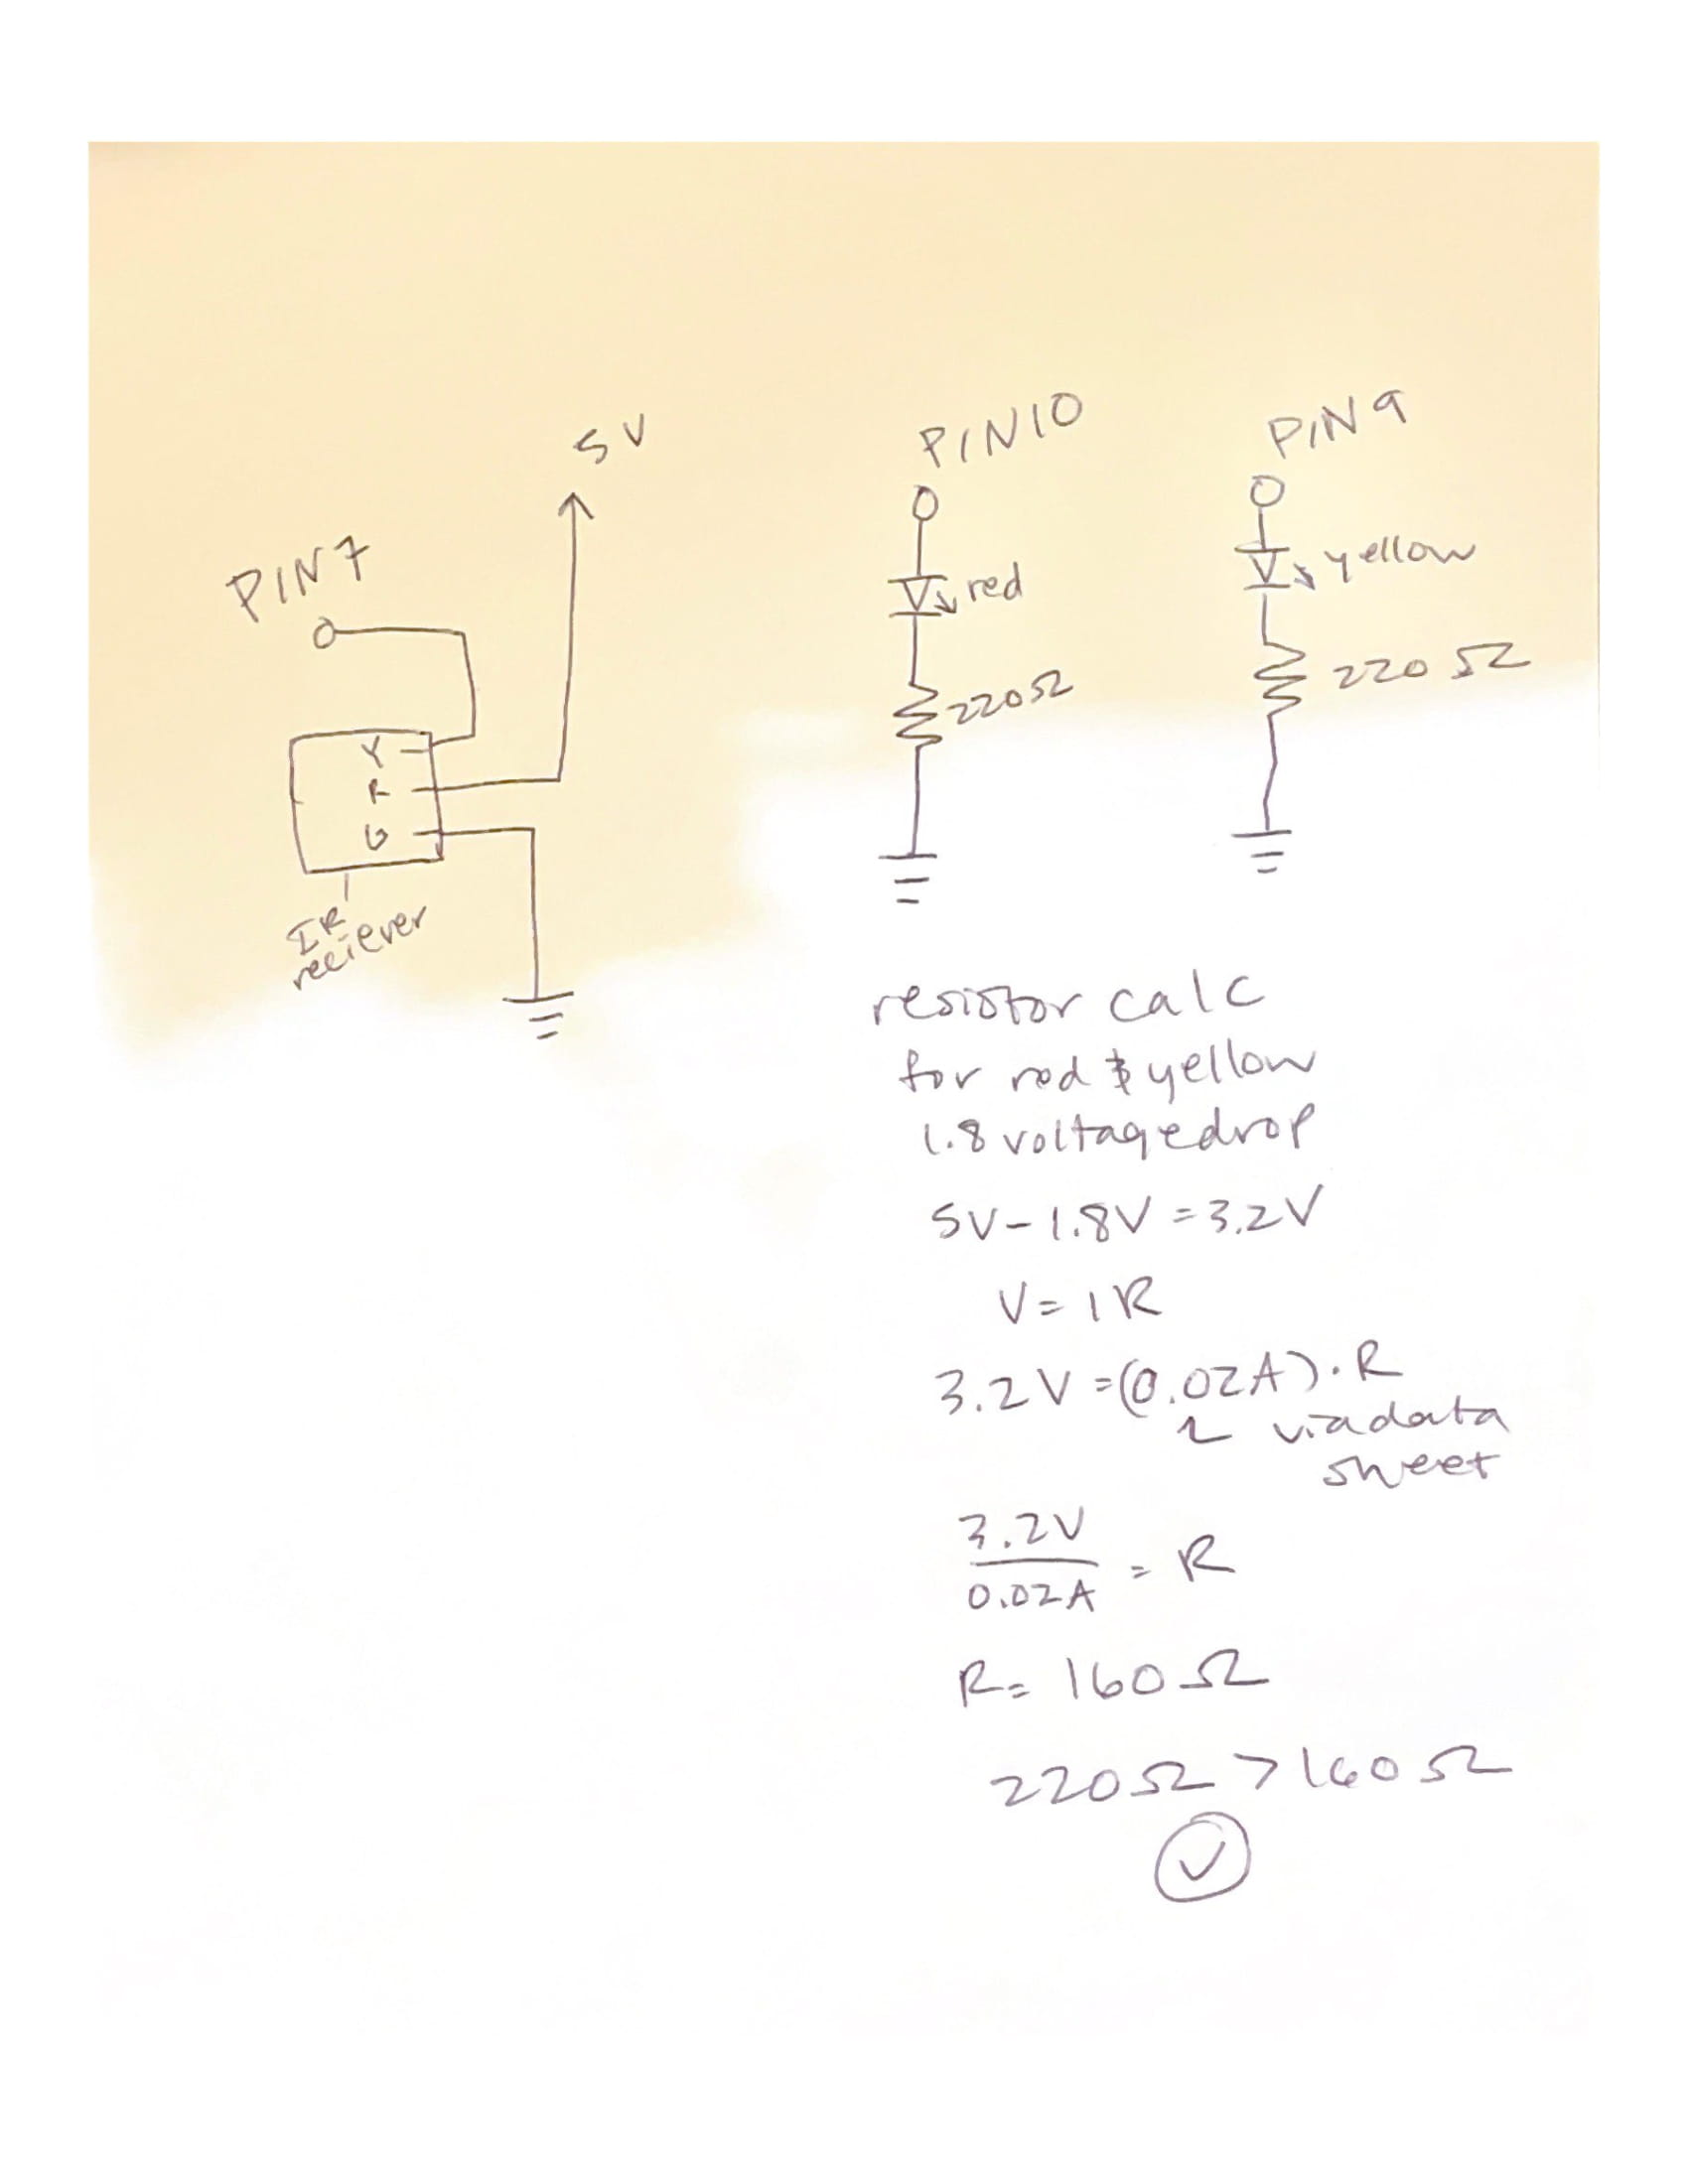 5V
PIN7
Y
R
G
IR
reciever
PIN10
red
220Ω
PIN9
yellow
220Ω
resistor calc
for red & yellow
1.8 voltage drop
5V-1.8V=3.2V
V=IR
3.2V=(0.02A)·R
via data
sheet
3.2V
0.02A
=R
R=160Ω
220Ω>160Ω